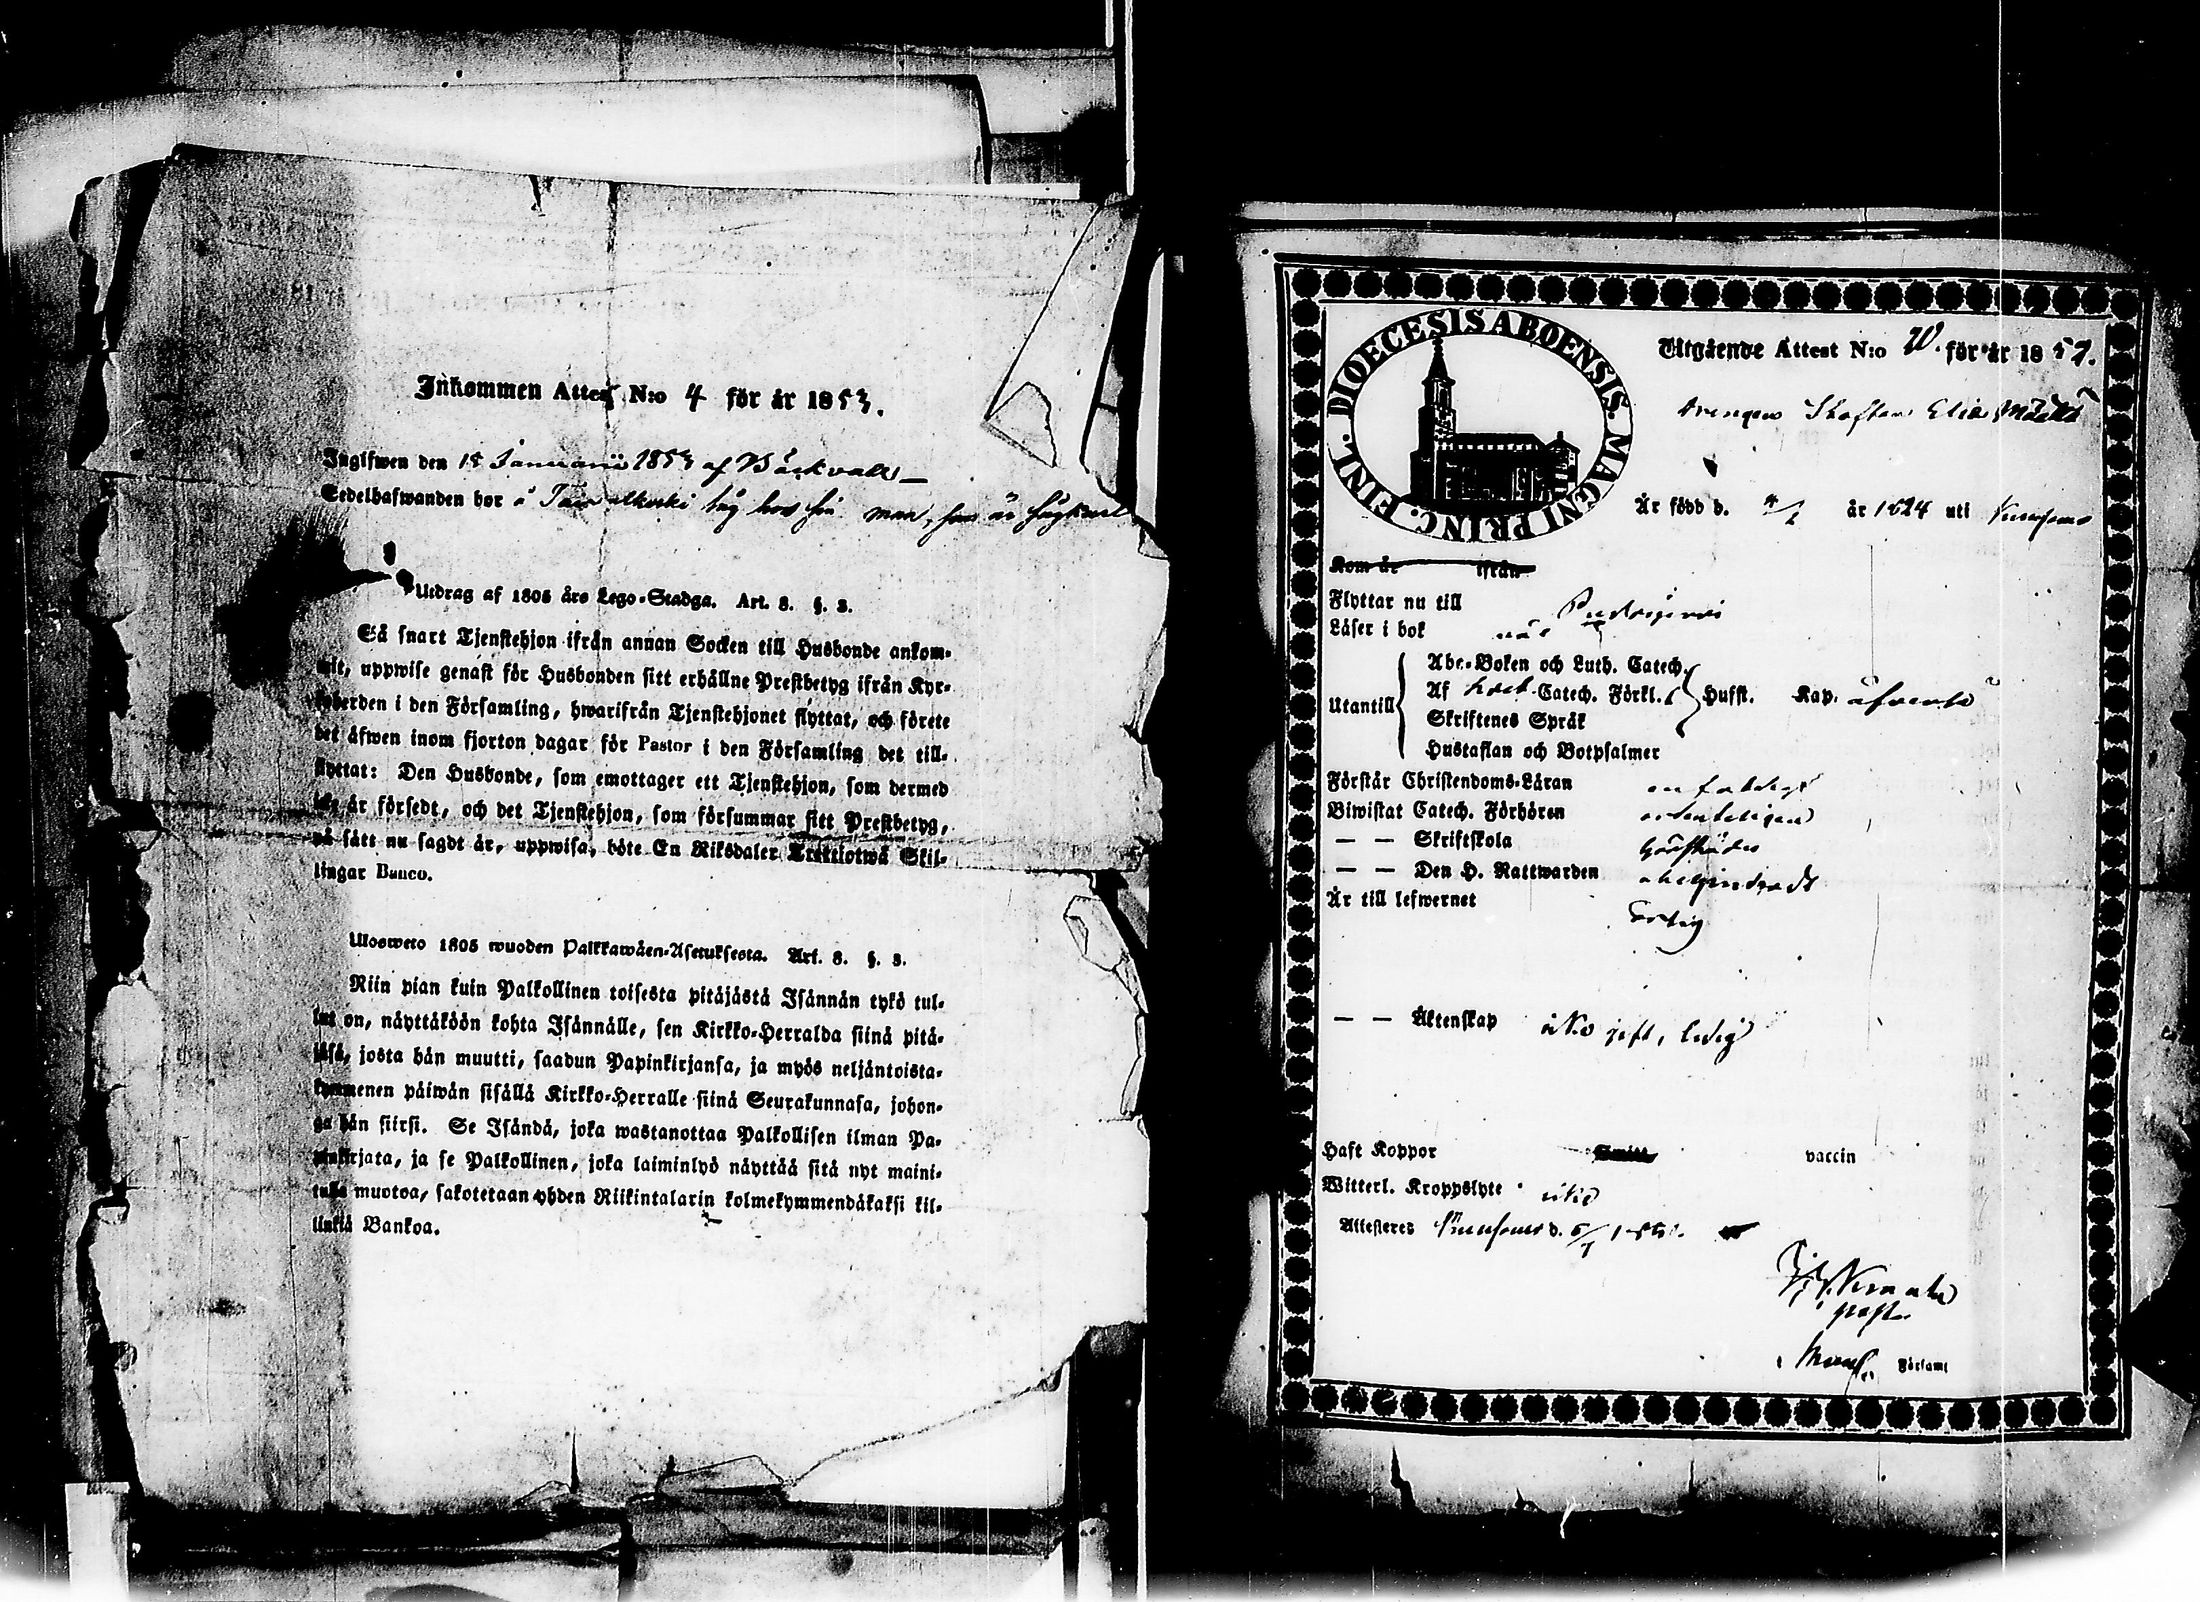 Inkommen Attest N:o 4 för år 1853.
Inglfwen den 15 Januarii 1853 af Bäckvall
Sedelhafwanden bor å hos sin man, som är
Utdrag af 1805 års Lego-Stadga. Art. 8. §. 3.
Så snart Tjenstehjon ifrån annan Socken till Husbonde ankom-
mit, uppwise genast för Husbonden sitt erhållne Prestbetyg ifrån Kyr-
koherden i den Församling, hwarifrån Tjenstehjonet flyttat, och förete
det äfwen inom fjorton dagar för Pastor i den Församling det till-
flyttat: Den Husbonde, som emottager ett Tjenstehjon, som dermed
icke är försedt, och det Tjenstehjon, som försummar sitt Prestbetyg,
på sätt nu sagdt är, uppwisa, böte En Riksdaler Trettiotwå Skil-
lingar Banco.
Ulosweto 1805 wuoden Palkkawäen-Asetuksesta. Art. 8. §. 3.
Niin pian kuin Palkollinen toisesta pitäjästä Isännän tykö tul-
lut on, näyttäköön kohta Isännälle, sen Kirkko-Herralda siinä pitä-
jäsä, josta hän muutti, saadun Papinkirjansa, ja myös neljäntoista-
kymmenen päiwän sisällä Kirkko-Herralle siinä Seurakunnasa, johon-
ga hän siirsi. Se Isändä, joka wastanottaa Palkollisen ilman Pa-
pinkirjata, ja se Palkollinen, joka laiminlyö näyttää sitä nyt maini-
tulla muotoa, sakotetaan yhden Riikintalarin kolmekymmendäkaksi kil-
linkiä Bankoa.
DIOECESIS ABOENSIS. MAGNI PRINC. FINL.
Utgående Attest N:o för år 185
Drengen Elias
Är född d. 4/ år 1824 uti Kuusamo
Kom år ifrån
Flyttar nu till Pudasjärvi
Läser i bok
Utantill
Abc-Boken och Luth. Catech.
Af Catech. Förkl. Hufst. Kap.
Skriftenes Språk
Hustaflan och Botpsalmer
Förstår Christendoms-Läran enfaldigt
Biwistat Catech. Förhören ordenteligen
— — Skriftskola
— — Den H. Nattwarden obehindradt
Är till lefwernet
— — Äktenskap icke gift, ledig
Haft Koppor Smitt vaccin
Witterl. Kroppslyte icke
Attesteras Kuusamo d.
Församl